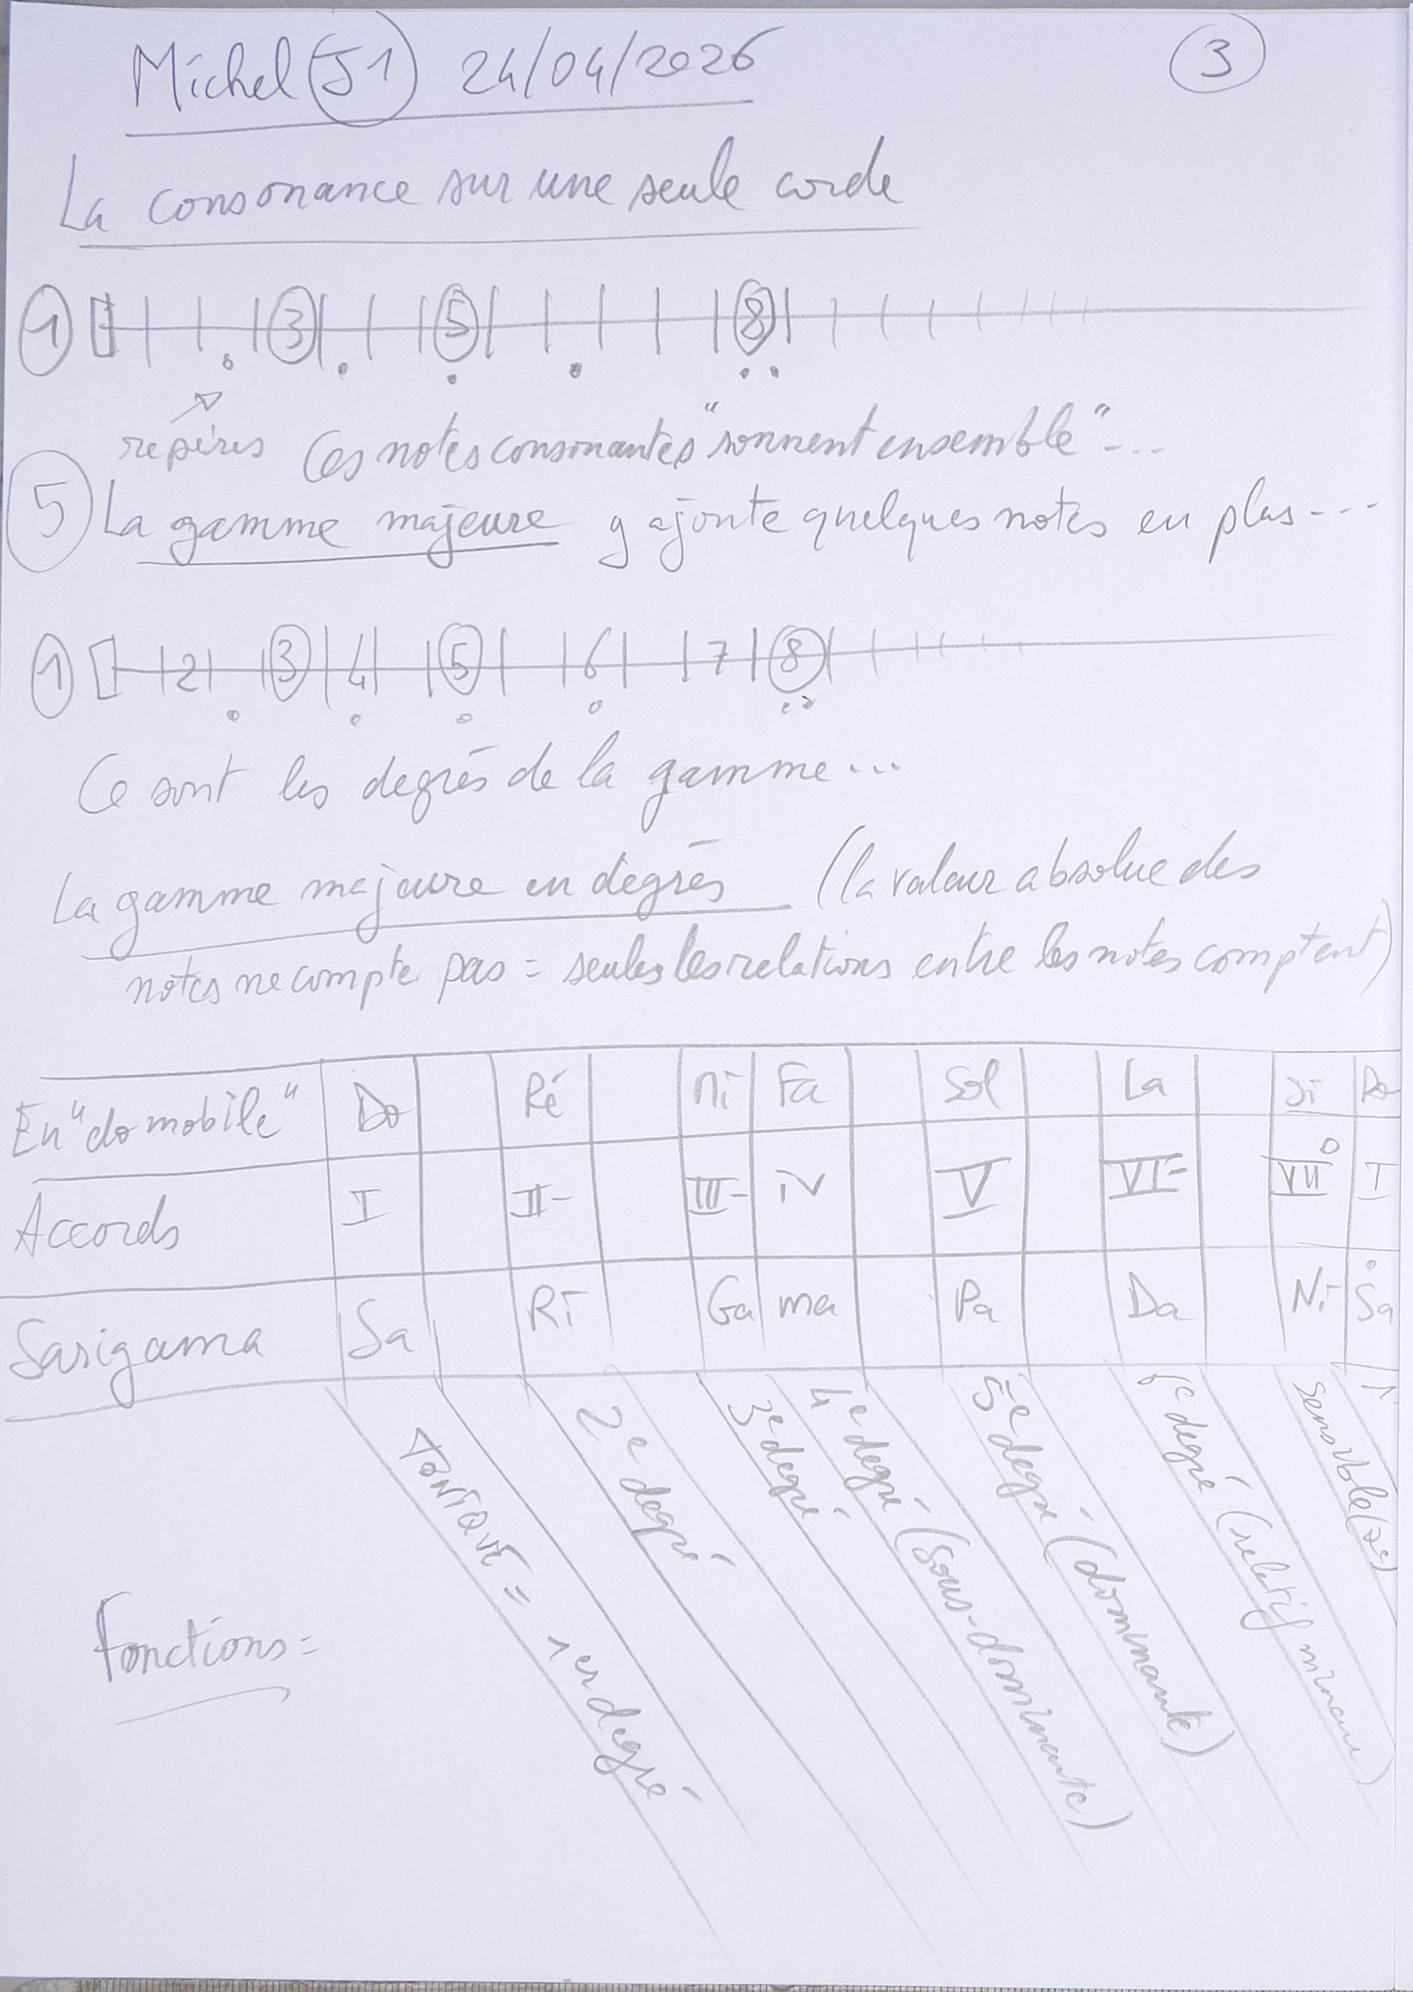 Michel J1 24/04/2026
3
La consonance sur une seule corde
1 3 5 8
repères Ces notes consonantes "sonnent ensemble"...
5 La gamme majeure y ajoute quelques notes en plus...
1 2 3 4 5 6 7 8
Ce sont les degrés de la gamme...
La gamme majeure en degrés (la valeur absolue des
notes ne compte pas = seules les relations entre les notes comptent)
En "do mobile" Do Ré Mi Fa Sol La Si Do
Accords I II- III- IV V VI- VII° I
Sarigama Sa Ri Ga ma Pa Da Ni Sa
Fonctions =
TONIQUE = 1er degré
2e degré
3e degré
4e degré (sous-dominante)
5e degré (dominante)
6e degré (relatif mineur)
sensible